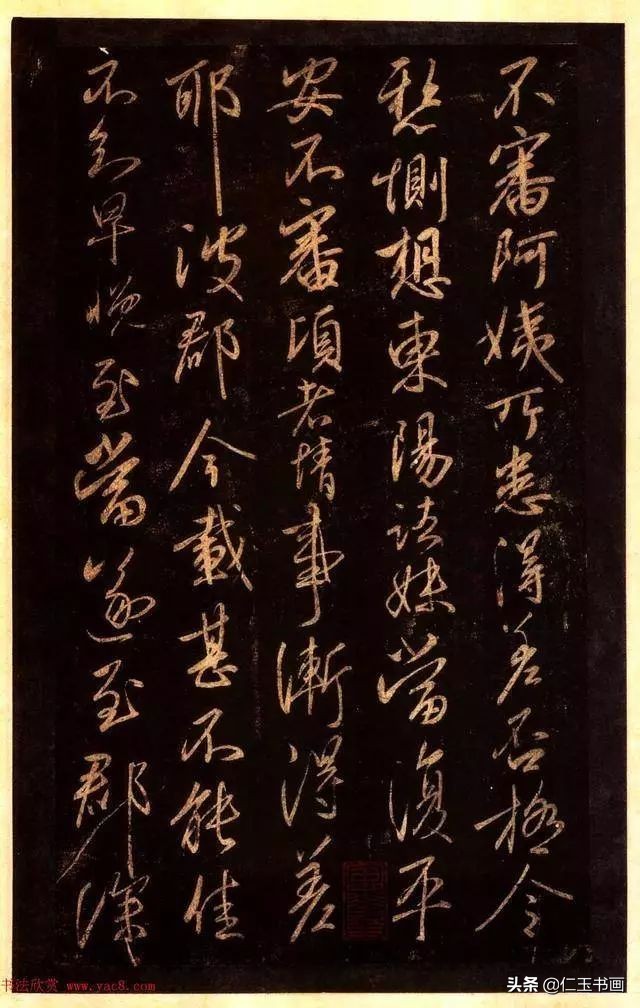 不審阿姨所患得差否極令
愁惻想東陽諸妹當復平
安不審頃者情事漸得差
耶彼郡今載甚不能佳
不知早晚至當遂至郡深
书法欣赏 www.yac8.com
头条 @仁玉书画